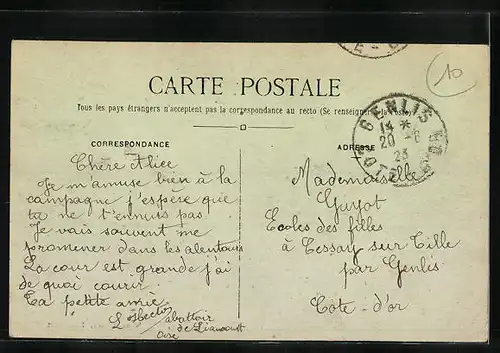 10
CARTE POSTALE
Tous les pays étrangers n'acceptent pas la correspondance au recto (Se renseigner à la Poste)
GENLIS CÔTE D'OR
14 *
20 -6
23
CORRESPONDANCE
Chère Alice
Je m'amuse bien à la
campagne j'espère que
tu ne t'ennuis pas!
Je vais souvent me
promener dans les alentours
La cour est grande j'ai
de quoi courir.
Ta petite amie
abattoir
de Liancourt
Oise
ADRESSE
Mademoiselle
Guyot
Ecoles des filles
à Cessay sur Tille
par Genlis
Côte-d'or